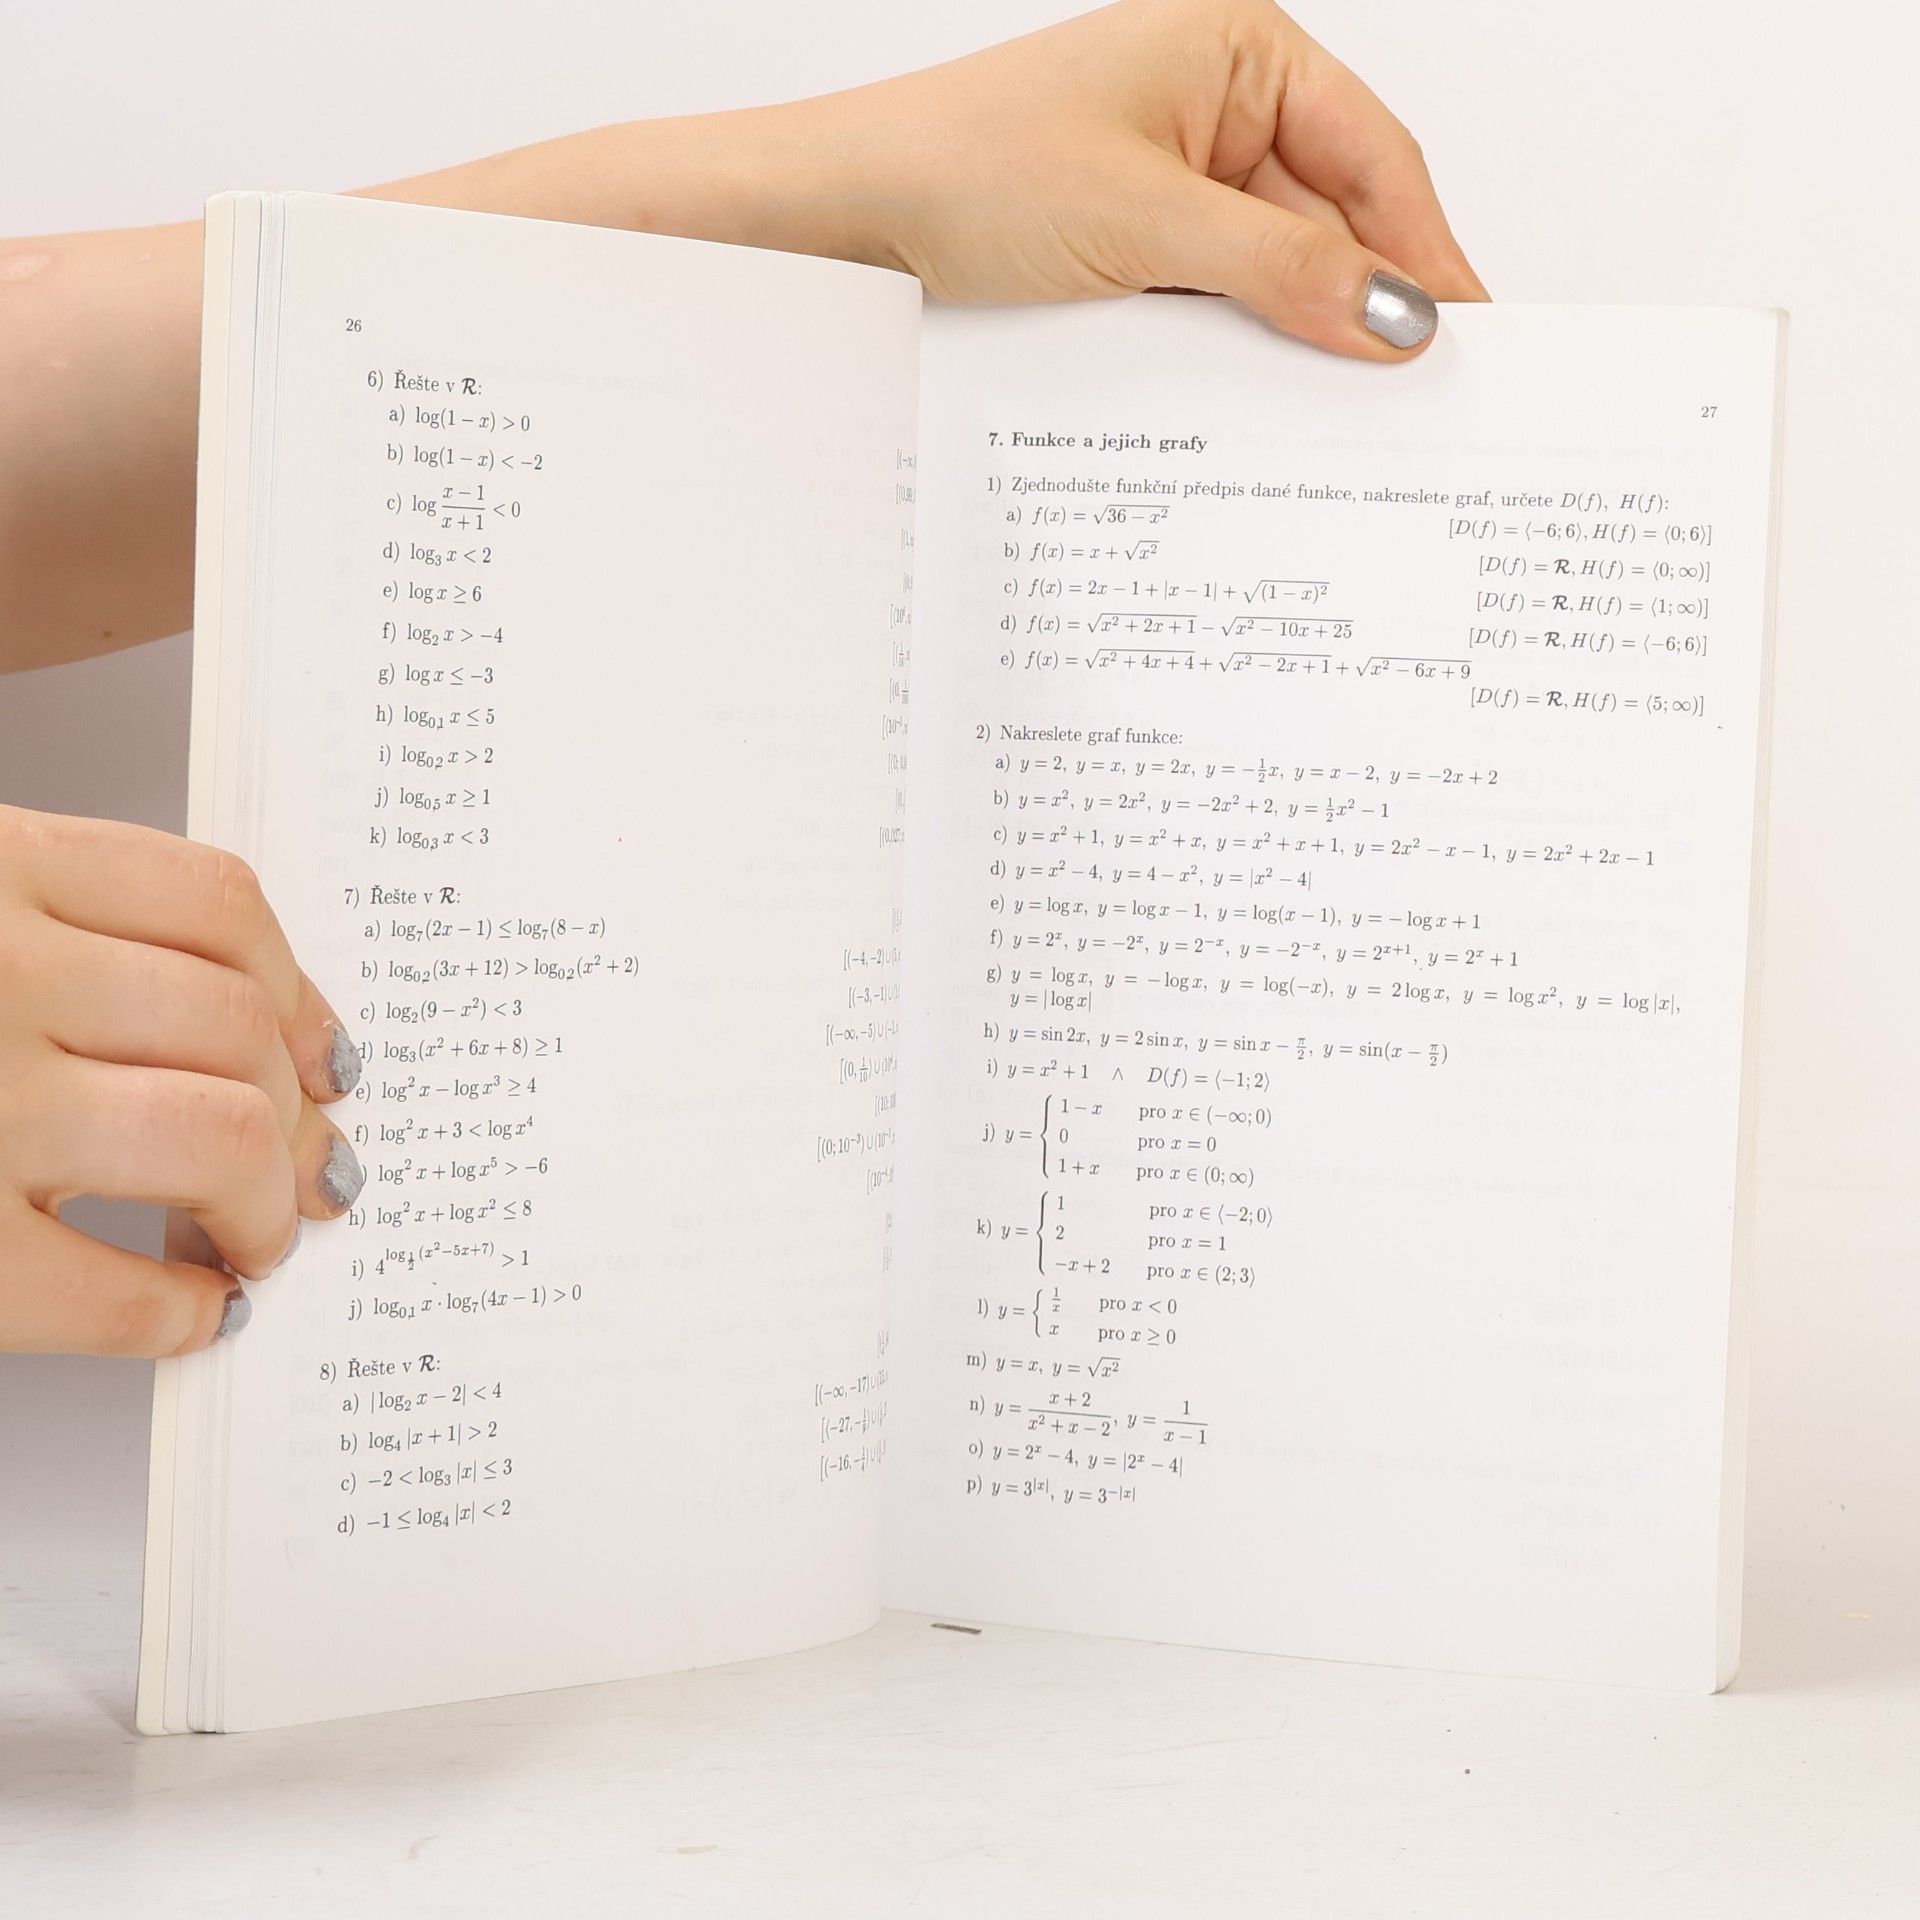 26
6) Řešte v R:
a) log(1 − x) > 0
b) log(1 − x) < −2
c) log (x − 1)/(x + 1) < 0
d) log₃ x < 2
e) log x ≥ 6
f) log₂ x > −4
g) log x ≤ −3
h) log₀,₁ x ≤ 5
i) log₀,₂ x > 2
j) log₀,₅ x ≥ 1
k) log₀,₃ x < 3
7) Řešte v R:
a) log₇(2x − 1) ≤ log₇(8 − x)
b) log₀,₂(3x + 12) > log₀,₂(x² + 2)
c) log₂(9 − x²) < 3
d) log₃(x² + 6x + 8) ≥ 1
e) log² x − log x³ ≥ 4
f) log² x + 3 < log x⁴
) log² x + log x⁵ > −6
h) log² x + log x² ≤ 8
i) 4^(log_(1/2)(x²−5x+7)) > 1
j) log₀,₁ x · log₇(4x − 1) > 0
8) Řešte v R:
a) |log₂ x − 2| < 4
b) log₄ |x + 1| > 2
c) −2 < log₃ |x| ≤ 3
d) −1 ≤ log₄ |x| < 2
27
7. Funkce a jejich grafy
1) Zjednodušte funkční předpis dané funkce, nakreslete graf, určete D(f), H(f):
a) f(x) = √(36 − x²) [D(f) = ⟨−6; 6⟩, H(f) = ⟨0; 6⟩]
b) f(x) = x + √(x²) [D(f) = R, H(f) = ⟨0; ∞)]
c) f(x) = 2x − 1 + |x − 1| + √((1 − x)²) [D(f) = R, H(f) = ⟨1; ∞)]
d) f(x) = √(x² + 2x + 1) − √(x² − 10x + 25) [D(f) = R, H(f) = ⟨−6; 6⟩]
e) f(x) = √(x² + 4x + 4) + √(x² − 2x + 1) + √(x² − 6x + 9)
[D(f) = R, H(f) = ⟨5; ∞)]
2) Nakreslete graf funkce:
a) y = 2, y = x, y = 2x, y = −½x, y = x − 2, y = −2x + 2
b) y = x², y = 2x², y = −2x² + 2, y = ½x² − 1
c) y = x² + 1, y = x² + x, y = x² + x + 1, y = 2x² − x − 1, y = 2x² + 2x − 1
d) y = x² − 4, y = 4 − x², y = |x² − 4|
e) y = log x, y = log x − 1, y = log(x − 1), y = − log x + 1
f) y = 2ˣ, y = −2ˣ, y = 2⁻ˣ, y = −2⁻ˣ, y = 2ˣ⁺¹, y = 2ˣ + 1
g) y = log x, y = − log x, y = log(−x), y = 2 log x, y = log x², y = log |x|,
y = | log x|
h) y = sin 2x, y = 2 sin x, y = sin x − π/2, y = sin(x − π/2)
i) y = x² + 1 ∧ D(f) = ⟨−1; 2⟩
j) y = { 1 − x pro x ∈ (−∞; 0)
0 pro x = 0
1 + x pro x ∈ (0; ∞)
k) y = { 1 pro x ∈ ⟨−2; 0⟩
2 pro x = 1
−x + 2 pro x ∈ (2; 3⟩
l) y = { 1/x pro x < 0
x pro x ≥ 0
m) y = x, y = √(x²)
n) y = (x + 2)/(x² + x − 2), y = 1/(x − 1)
o) y = 2ˣ − 4, y = |2ˣ − 4|
p) y = 3^|x|, y = 3^−|x|